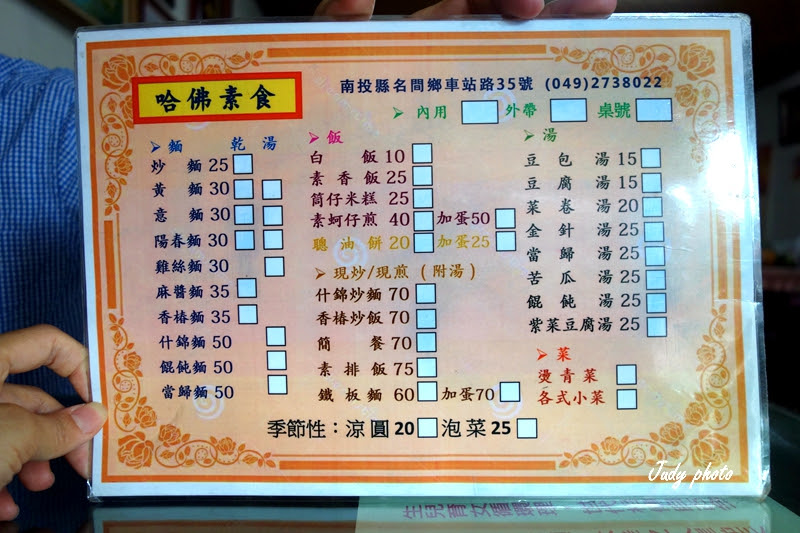 哈佛素食
南投縣名間鄉車站路35號 (049)2738022
➢ 內用 □ 外帶 □ 桌號 □
➢ 麵 乾 湯
炒麵 25 □
黃麵 30 □ □
意麵 30 □ □
陽春麵 30 □ □
雞絲麵 30 □
麻醬麵 35 □
香椿麵 35 □
什錦麵 50 □
餛飩麵 50 □
當歸麵 50 □
➢ 飯
白飯 10 □
素香飯 25 □
筒仔米糕 25 □
素蚵仔煎 40 □ 加蛋50 □
聰油餅 20 □ 加蛋25 □
➢ 現炒/現煎 (附湯)
什錦炒麵 70 □
香椿炒飯 70 □
簡餐 70 □
素排飯 75 □
鐵板麵 60 □ 加蛋70 □
➢ 湯
豆包湯 15 □
豆腐湯 15 □
菜卷湯 20 □
金針湯 25 □
當歸湯 25 □
苦瓜湯 25 □
餛飩湯 25 □
紫菜豆腐湯 25 □
➢ 菜
燙青菜 □
各式小菜 □
季節性：涼圓 20 □ 泡菜 25 □
Judy photo